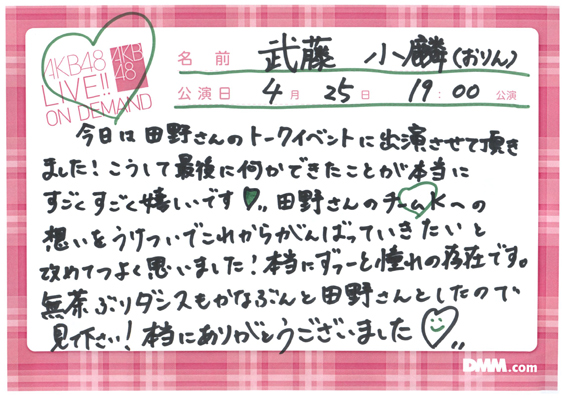 AKB48
LIVE!!
ON DEMAND
AKB
48
名前 武藤 小麟(おりん)
公演日 4月 25日 19:00 公演
今日は田野さんのトークイベントに出演させて頂き
ました!こうして最後に何かできたことが本当に
すごくすごく嬉しいです♥,, 田野さんのチームKへの
想いをうけついでこれからがんばっていきたいと
改めてつよく思いました!本当にずっーと憧れの存在です。
無茶ぶりダンスもかなぶんと田野さんとしたので
見て下さい!本当にありがとうございました♡,,
DMM.com